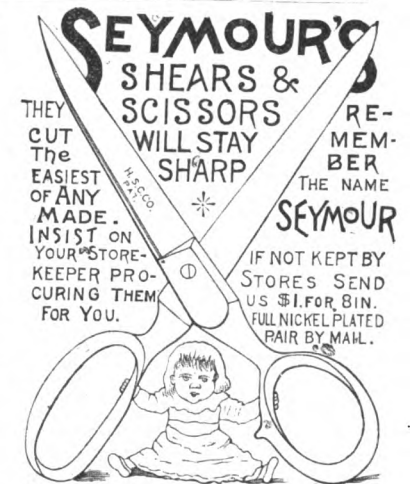 SEYMOUR'S
SHEARS &
SCISSORS
WILL STAY
SHARP
H.S.C.CO.
PAT.
THEY
CUT
The
EASIEST
OF ANY
MADE.
INSIST ON
YOUR STORE-
KEEPER PRO-
CURING THEM
FOR YOU.
RE-
MEM-
BER
THE NAME
SEYMOUR
IF NOT KEPT BY
STORES SEND
US $1. FOR 8IN.
FULL NICKEL PLATED
PAIR BY MAIL.